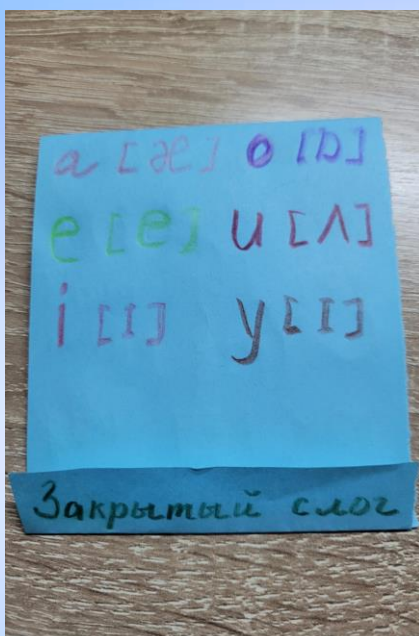 a [æ] o [ɒ]
e [e] u [ʌ]
i [ɪ] y [ɪ]
Закрытый слог